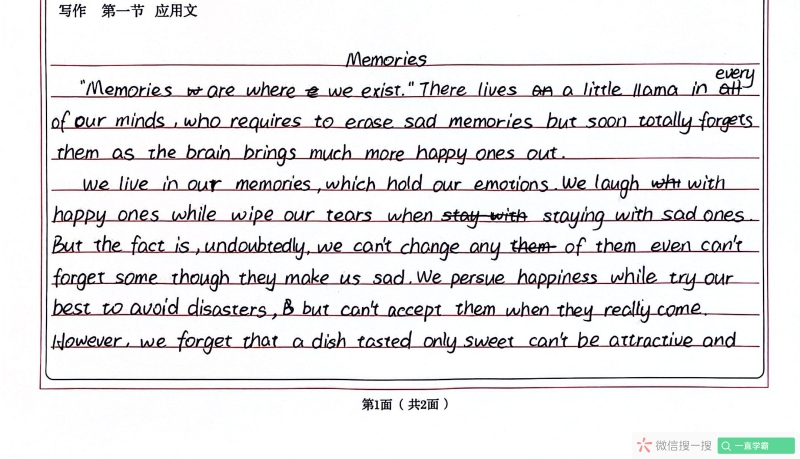 写作 第一节 应用文
Memories
"Memories are where we exist." There lives a little llama in every
of our minds, who requires to erase sad memories but soon totally forgets
them as the brain brings much more happy ones out.
We live in our memories, which hold our emotions. We laugh with
happy ones while wipe our tears when staying with sad ones.
But the fact is, undoubtedly, we can't change any of them even can't
forget some though they make us sad. We persue happiness while try our
best to avoid disasters, but can't accept them when they really come.
However, we forget that a dish tasted only sweet can't be attractive and
第1面（共2面）
微信搜一搜 一直学霸